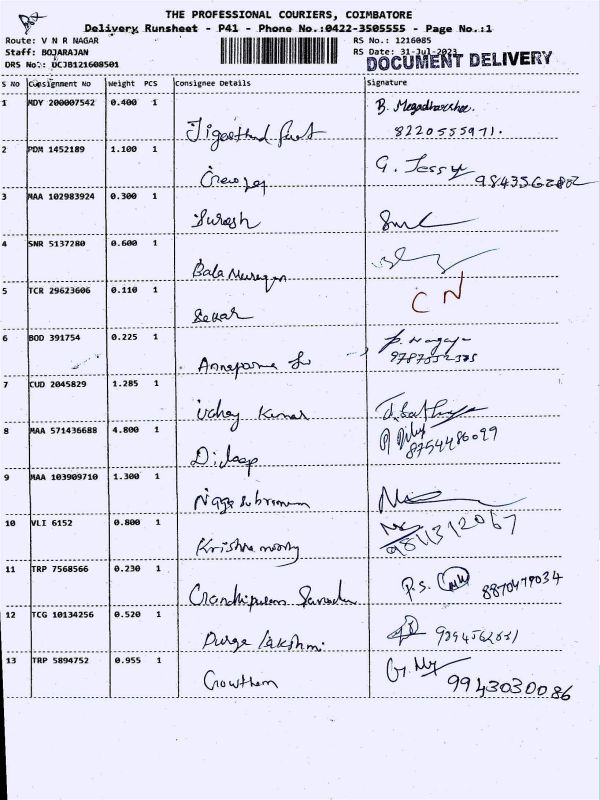 THE PROFESSIONAL COURIERS, COIMBATORE
Delivery Runsheet - P41 - Phone No.:0422-3505555 - Page No.:1
Route: V N R NAGAR
Staff: BOJARAJAN
DRS No.: DCJB121608501
RS No.: 1216085
RS Date: 31-Jul-2023
DOCUMENT DELIVERY
S No Consignment No Weight PCS Consignee Details Signature
1 MDY 200007542 0.400 1
8220555971.
2 PDM 1452189 1.100 1
G. Jessy 9843562802
3 MAA 102983924 0.300 1
Suresh
4 SNR 5137280 0.600 1
Bala Murugan
5 TCR 29623606 0.110 1 C N
Sekar
6 BOD 391754 0.225 1
7 CUD 2045829 1.285 1
Kumar
8 MAA 571436688 4.800 1 8754486099
Dileep
9 MAA 103909710 1.300 1
10 VLI 6152 0.800 1
Krishna
11 TRP 7568566 0.230 1
P.S. 8870479034
12 TCG 10134256 0.520 1
Durga Lakshmi
13 TRP 5894752 0.955 1
Gowtham 9943030086